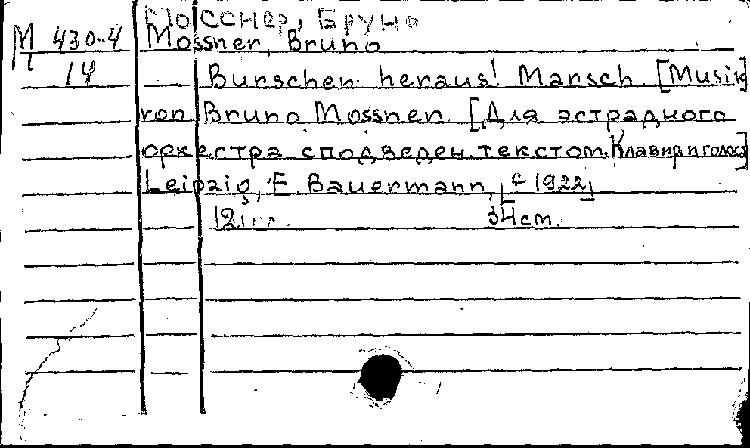 Мосснер, Бруно
М 430-4 Mossner, Bruno
14 Burschen heraus! Marsch. [Musik
von Bruno Mossner. [Для эстрадного
оркестра с подведен. текстом. Клавир и голоса]
Leipzig, E. Bauermann, [c 1922]
34 cm.